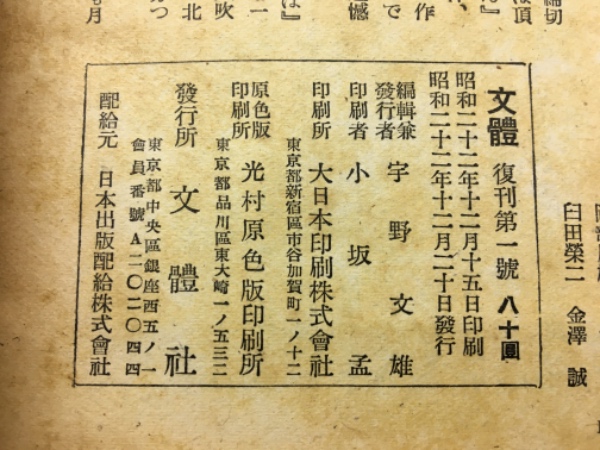 締切
は頂
作
で
憾
は』
一
吹
北
つ
月
臼田榮二　金澤　誠
文體　復刊第一號　八十圓
昭和二十二年十二月十五日印刷
昭和二十二年十二月二十日發行
編輯兼
發行者　宇野文雄
印刷者　小坂孟
印刷所　大日本印刷株式會社
東京都新宿區市谷加賀町一ノ十二
原色版
印刷所　光村原色版印刷所
東京都品川區東大崎一ノ五三二
發行所　文體社
東京都中央區銀座西五ノ一
會員番號A二〇二〇四四
配給元　日本出版配給株式會社